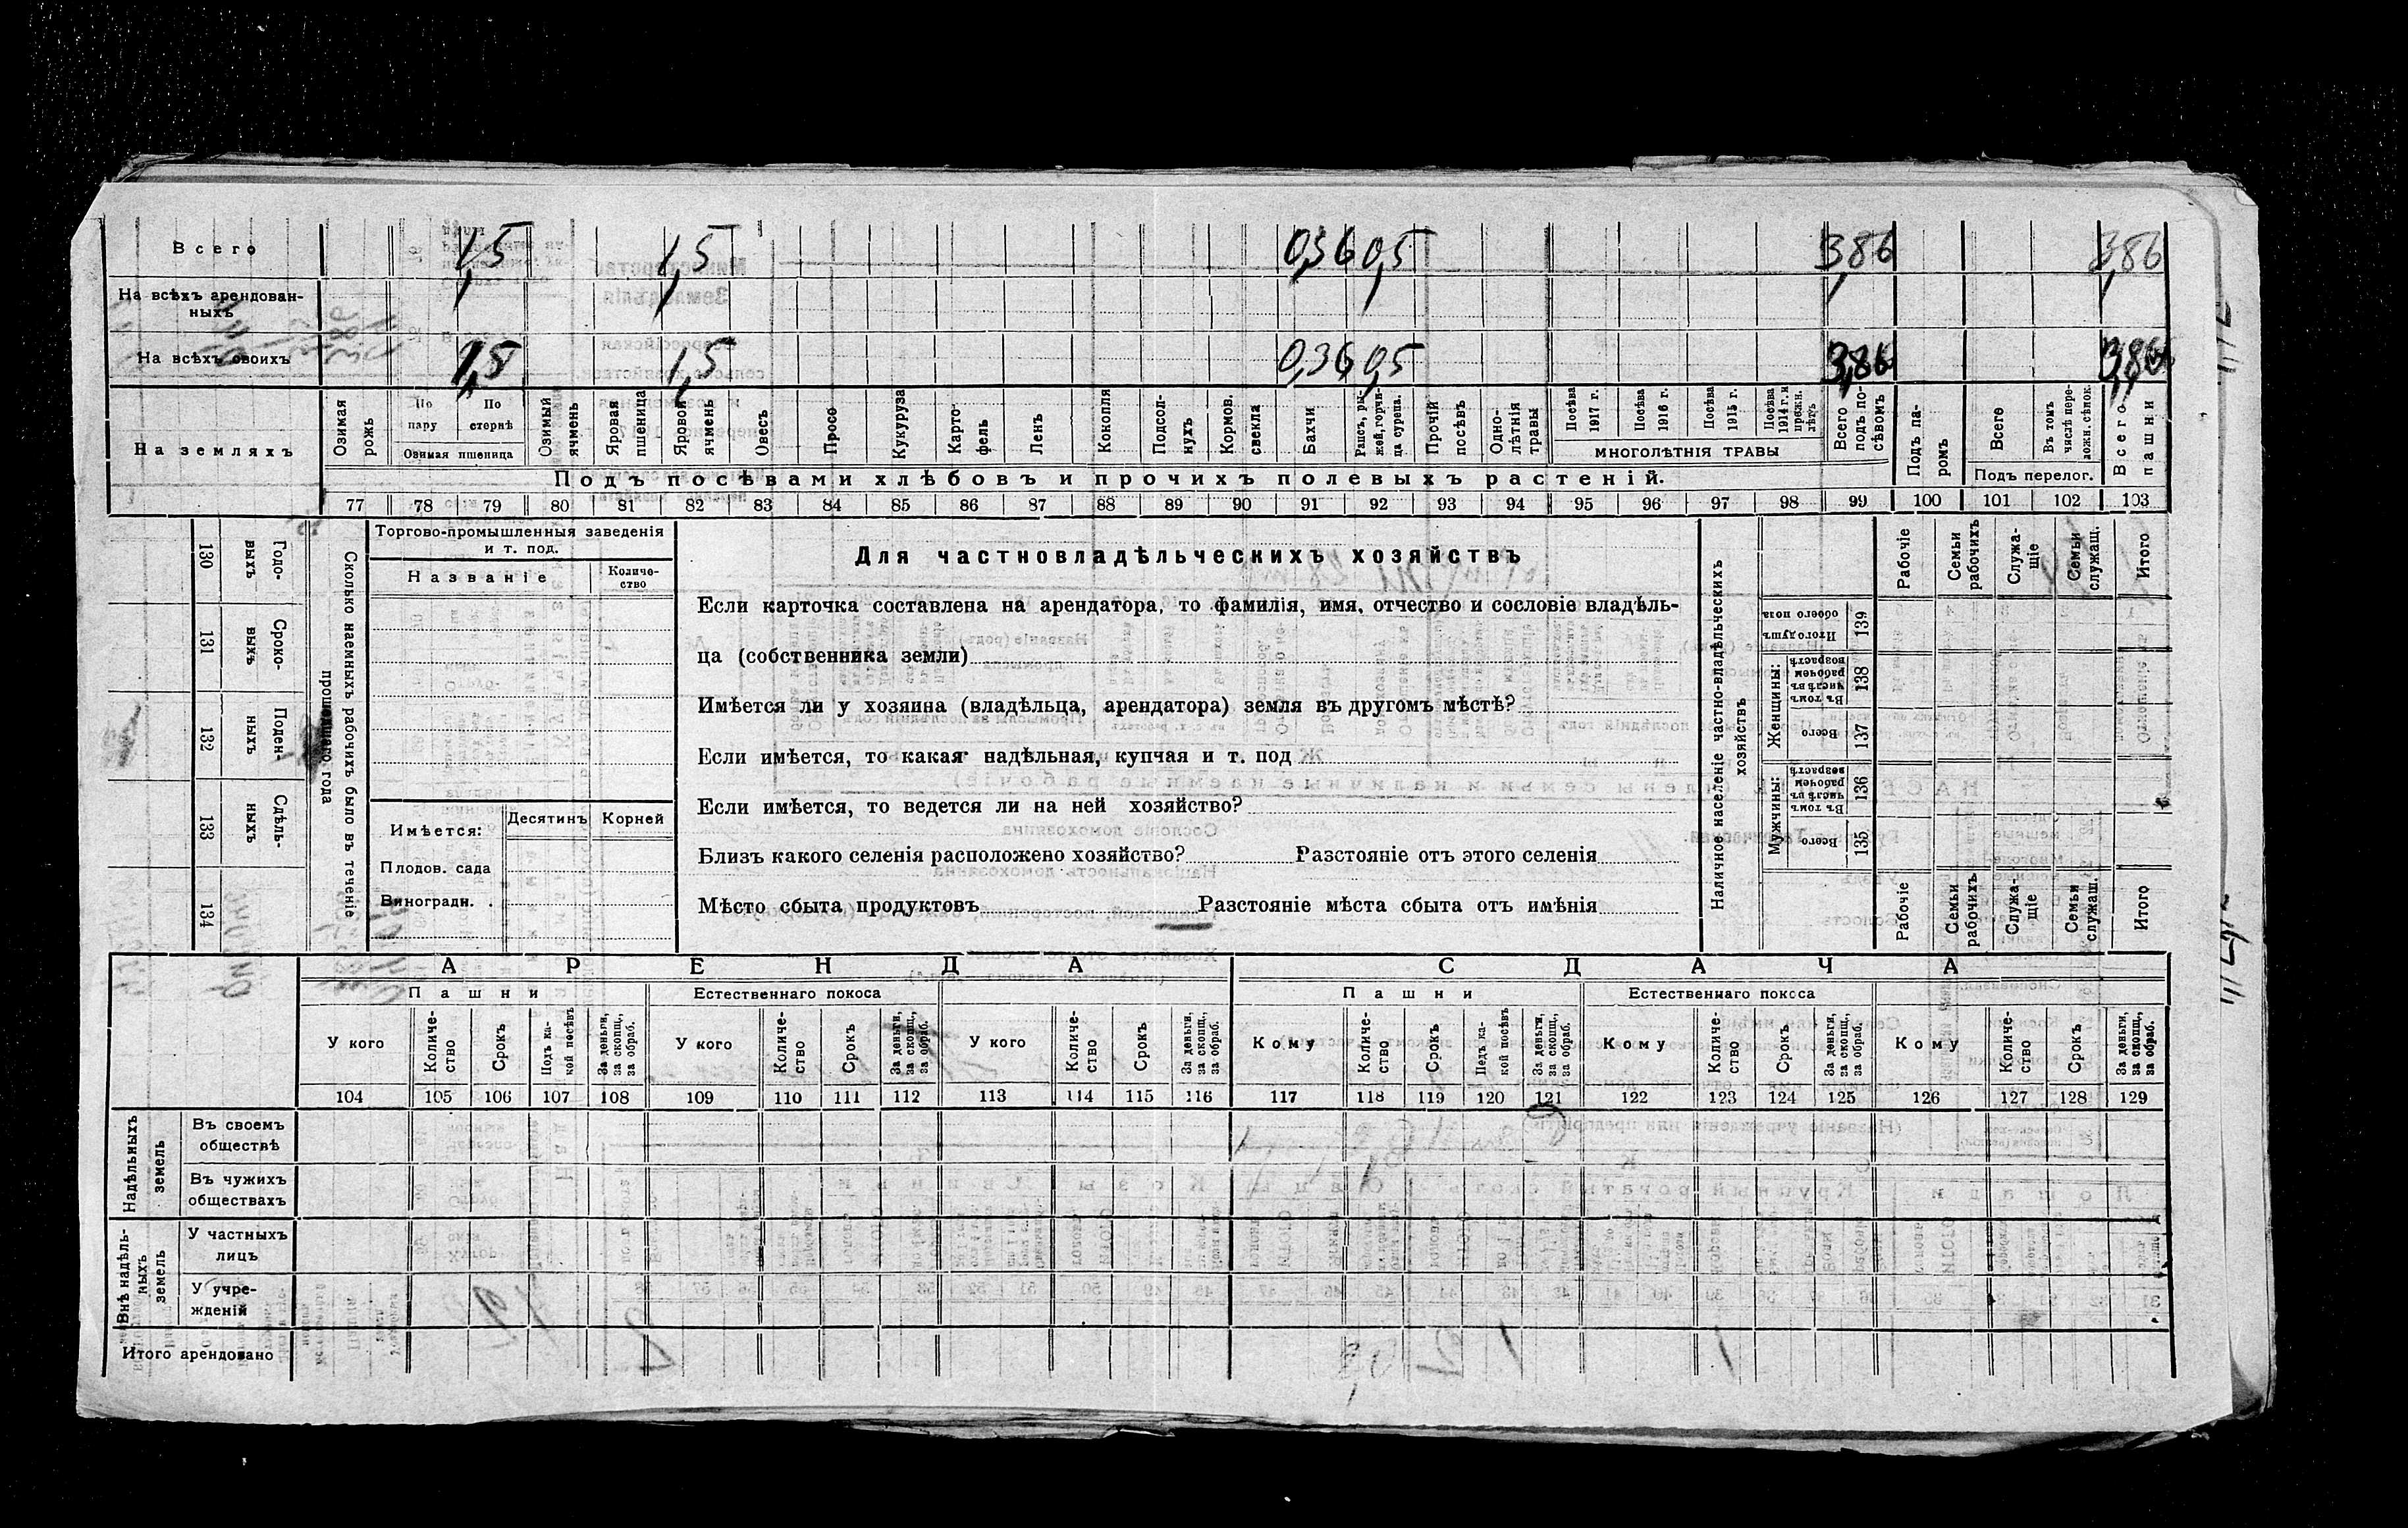 Всего 1,5 1,5 0,36 0,5 3,86 3,86
На всѣхъ арендован-
ныхъ
На всѣхъ своихъ 1,5 1,5 0,36 0,5 3,86 3,86
На земляхъ
Озимая рожь
По пару
По стернѣ
Озимая пшеница
Озимый ячмень
Яровая пшеница
Яровой ячмень
Овесъ
Просо
Кукуруза
Карто-
фель
Ленъ
Конопля
Подсол-
нухъ
Кормов.
свекла
Бахчи
Рапсъ, ры-
жей, горчи-
ца сурепа.
Прочій
посѣвъ
Одно-
лѣтнія
травы
Посѣва
1917 г.
Посѣва
1916 г.
Посѣва
1915 г.
Посѣва
1914 г. и
прежн.
лѣтъ
МНОГОЛѢТНІЯ ТРАВЫ
Всего
подъ по-
сѣвомъ
Подъ па-
ромъ
Всего
Въ томъ
числѣ пере-
ложн. сѣнок.
Подъ перелог.
Всего
пашни
Подъ посѣвами хлѣбовъ и прочихъ полевыхъ растеній.
77 78 79 80 81 82 83 84 85 86 87 88 89 90 91 92 93 94 95 96 97 98 99 100 101 102 103
130 Годо-
выхъ
131 Сроко-
выхъ
132 Поден-
ныхъ
133 Сдѣль-
ныхъ
134
Сколько наемныхъ рабочихъ было въ теченіе
прошедшаго года
Торгово-промышленныя заведенія
и т. под.
Названіе
Количе-
ство
Имѣется:
Десятинъ
Корней
Плодов. сада
Виноградн.
Для частновладѣльческихъ хозяйствъ
Если карточка составлена на арендатора, то фамилія, имя, отчество и сословіе владѣль-
ца (собственника земли)
Имѣется ли у хозяина (владѣльца, арендатора) земля въ другомъ мѣстѣ?
Если имѣется, то какая надѣльная, купчая и т. под
Если имѣется, то ведется ли на ней хозяйство?
Близъ какого селенія расположено хозяйство? Разстояніе отъ этого селенія
Мѣсто сбыта продуктовъ Разстояніе мѣста сбыта отъ имѣнія
Наличное населеніе частно-владѣльческихъ
хозяйствъ
Рабочіе
Семьи
рабочихъ
Служа-
щіе
Семьи
служащ.
Итого
Итого душъ
обоего пола
139
Женщины:
Въ томъ
числѣ въ
рабочемъ
возрастѣ
138
Всего
137
Мужчины:
Въ томъ
числѣ въ
рабочемъ
возрастѣ
136
Всего
135
Рабочіе
Семьи
рабочихъ
Служа-
щіе
Семьи
служащ.
Итого
АРЕНДА СДАЧА
Пашни Естественнаго покоса Пашни Естественнаго покоса
У кого
Количе-
ство
Срокъ
Подъ ка-
кой посѣвъ
За деньги,
за скопщ.,
за обраб.
У кого
Количе-
ство
Срокъ
За деньги,
за скопщ.,
за обраб.
У кого
Количе-
ство
Срокъ
За деньги,
за скопщ.,
за обраб.
Кому
Количе-
ство
Срокъ
Подъ ка-
кой посѣвъ
За деньги,
за скопщ.,
за обраб.
Кому
Количе-
ство
Срокъ
За деньги,
за скопщ.,
за обраб.
Кому
Количе-
ство
Срокъ
За деньги,
за скопщ.,
за обраб.
104 105 106 107 108 109 110 111 112 113 114 115 116 117 118 119 120 121 122 123 124 125 126 127 128 129
Надѣльныхъ
земель
Въ своемъ
обществѣ
Въ чужихъ
обществахъ
Внѣ надѣль-
ныхъ
земель
У частныхъ
лицъ
У учре-
жденій
Итого арендовано